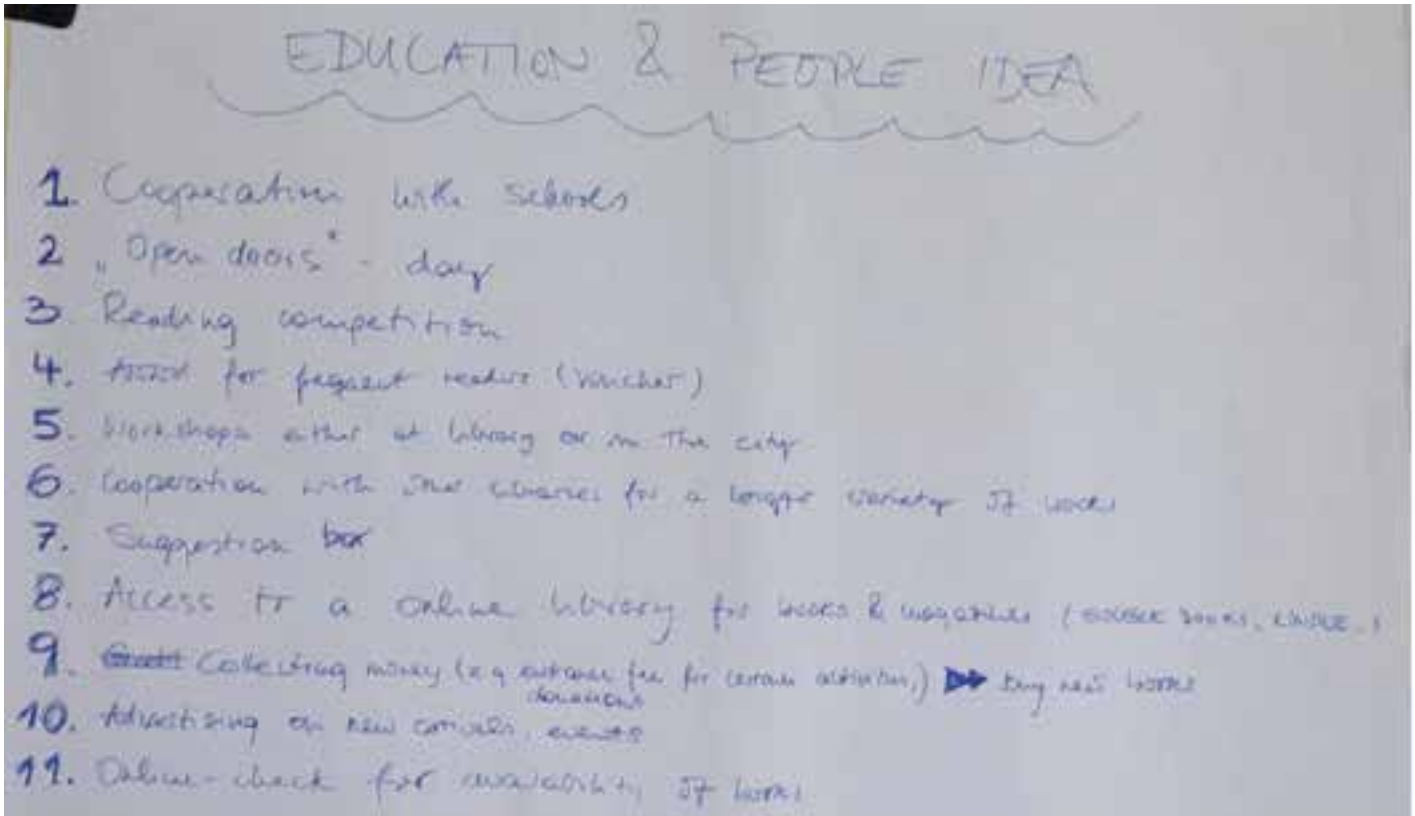 EDUCATION & PEOPLE IDEA
1. Cooperation with schools
2 „Open doors" - day
3. Reading competition
4. for frequent readers (voucher)
5. Workshops either at library or in the city
6. Cooperation with other libraries for a larger variety of books
7. Suggestion box
8. Access to a online library for books & magazines (GOOGLE BOOKS, KINDLE..)
9. Collecting money (e.g entrance fee for certain activities,) buy new books
donations
10. Advertising on new arrivals, events
11. Online-check for availability of books